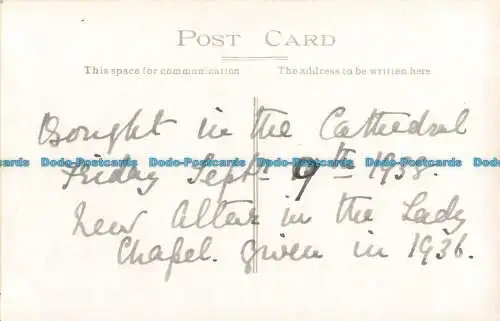 POST CARD
This space for communication The address to be written here
Bought in the Cathedral
Dodo-Postcards Dodo-Postcards Dodo-Postcards Dodo-Postcards
Friday Sept. 9th 1938.
New Altar in the Lady
Chapel. given in 1936.